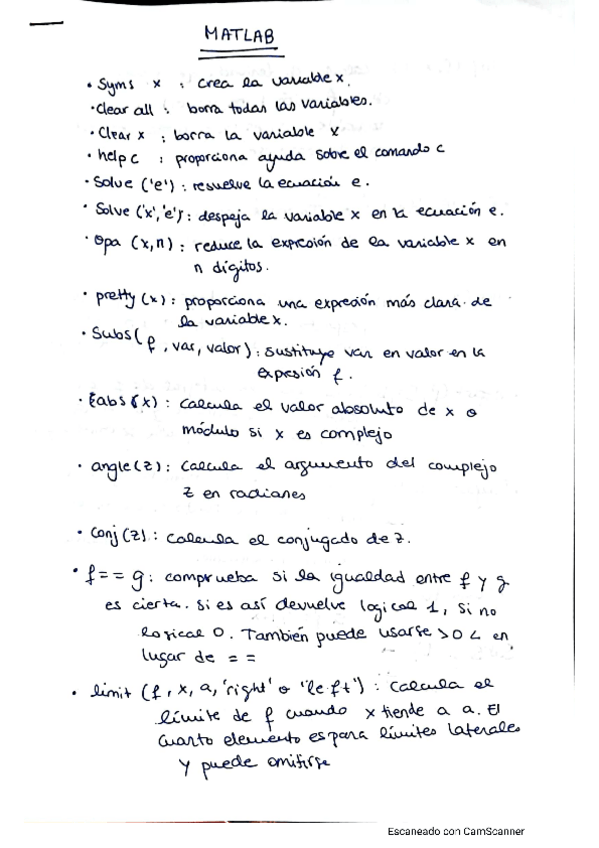 MATLAB
• Syms x : crea la variable x.
• Clear all : borra todas las variables.
• Clear x : borra la variable x
• help c : proporciona ayuda sobre el comando c
• Solve ('e') : resuelve la ecuación e.
• Solve ('x','e') : despeja la variable x en la ecuación e.
• Opa (x,n) : reduce la expresión de la variable x en
n dígitos.
• pretty (x) : proporciona una expresión más clara de
la variable x.
• Subs( f , var, valor) : sustituye var en valor en la
expresión f.
• abs (x) : calcula el valor absoluto de x o
módulo si x es complejo
• angle (z) : calcula el argumento del complejo
z en radianes
• Conj (z) : calcula el conjugado de z.
• f == g : comprueba si la igualdad entre f y g
es cierta. Si es así devuelve logical 1, si no
logical 0. También puede usarse > o < en
lugar de ==
• limit (f, x, a, 'right' o 'left') : calcula el
límite de f cuando x tiende a a. El
cuarto elemento es para límites laterales
y puede omitirse
Escaneado con CamScanner